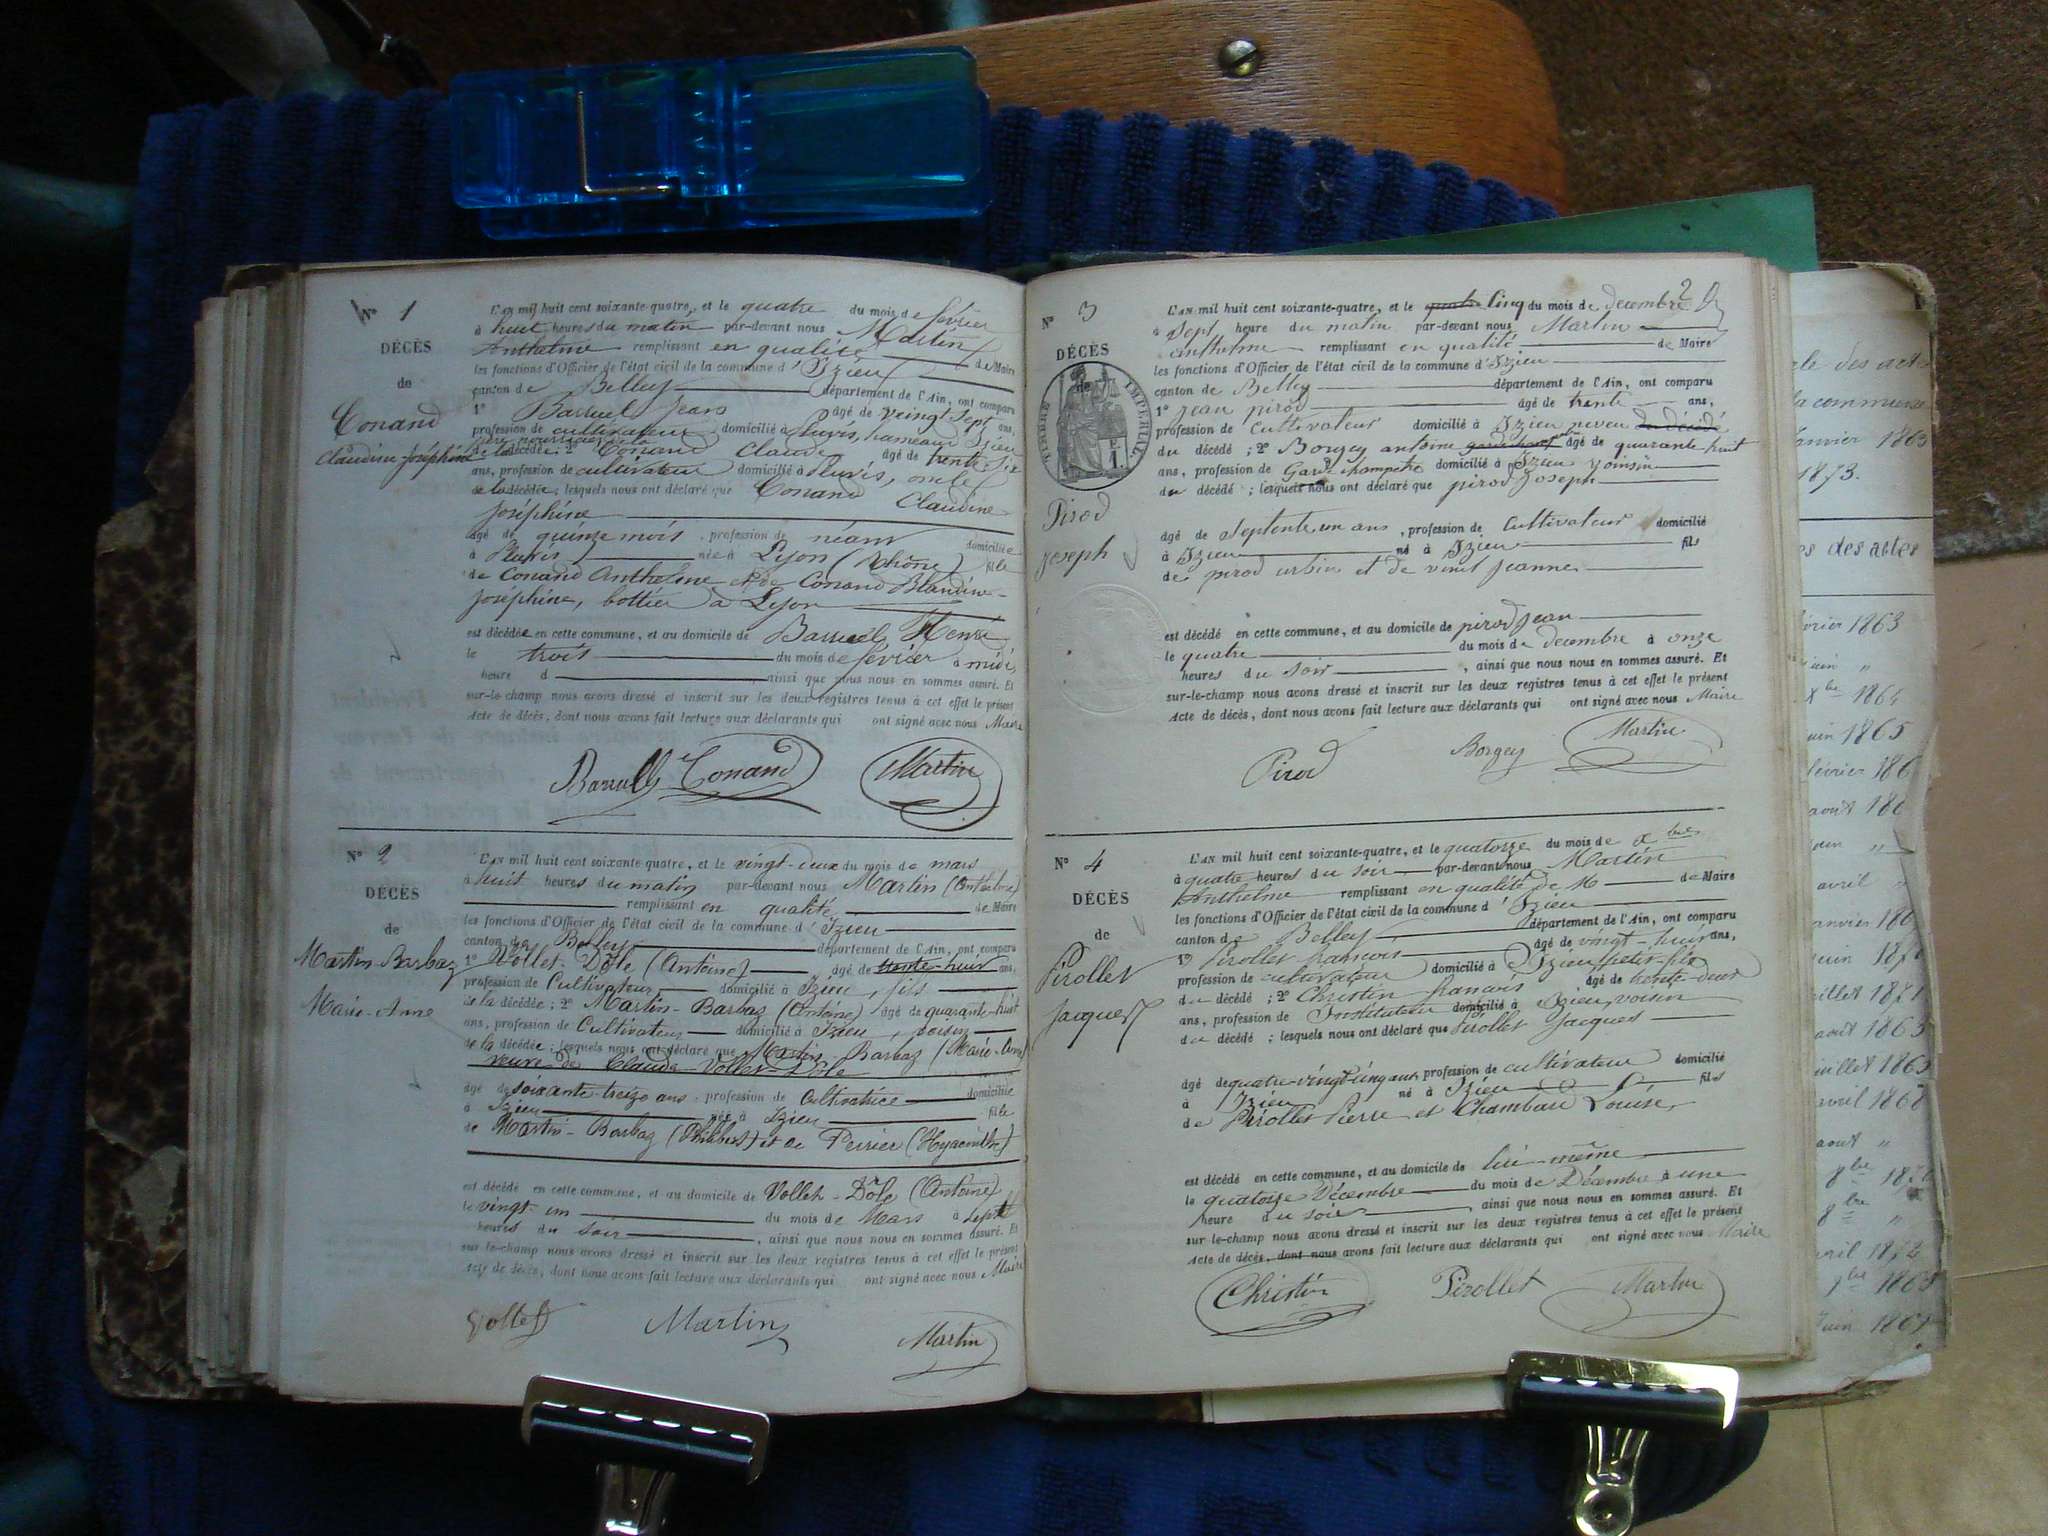 N° 1
DÉCÈS
de
Conand
Claudine-Joséphine
L'AN mil huit cent soixante-quatre, et le quatre du mois de février
à huit heures du matin par-devant nous Martin
Anthelme remplissant en qualité de Maire
les fonctions d'Officier de l'état civil de la commune d'Izieu
canton de Belley département de l'Ain, ont comparu
1° Barruel Jean âgé de vingt sept ans,
profession de cultivateur domicilié à Pluvis, hameau d'Izieu
père nourricier de la
de la décédée; 2° Conand Claude âgé de trente-six
ans, profession de cultivateur domicilié à Pluvis, oncle
de la décédée; lesquels nous ont déclaré que Conand Claudine
Joséphine
âgé de quinze mois, profession de néant domiciliée
à Pluvis née à Lyon (Rhône) fille
de Conand Anthelme et de Conand Blandine-
Joséphine, bottier à Lyon
est décédée en cette commune, et au domicile de Barruel Henri
le trois du mois de février à midi
heure d , ainsi que nous nous en sommes assuré. Et
sur-le-champ nous avons dressé et inscrit sur les deux registres tenus à cet effet le présent
Acte de décès, dont nous avons fait lecture aux déclarants qui ont signé avec nous Maire
Barruel Conand Martin
N° 2
DÉCÈS
de
Martin-Barbaz
Marie-Anne
L'AN mil huit cent soixante-quatre, et le vingt-deux du mois de mars
à huit heures du matin par-devant nous Martin (Anthelme)
remplissant en qualité de Maire
les fonctions d'Officier de l'état civil de la commune d'Izieu
canton de Belley département de l'Ain, ont comparu
1° Vollet-Dôle (Antoine) âgé de trente-huit ans,
profession de Cultivateur domicilié à Izieu, fils
de la décédée; 2° Martin-Barbaz (Antoine) âgé de quarante-huit
ans, profession de Cultivateur domicilié à Izieu, voisin
de la décédée; lesquels nous ont déclaré que Martin Barbaz (Marie-Anne)
veuve de Claude Vollet-Dôle
âgé de soixante-treize ans, profession de Cultivatrice domiciliée
à Izieu née à Izieu fille
de Martin-Barbaz (Philibert) et de Perrier (Hyacinthe)
est décédé en cette commune, et au domicile de Vollet-Dôle (Antoine)
le vingt-un du mois de Mars à sept
heures du soir , ainsi que nous nous en sommes assuré. Et
sur-le-champ nous avons dressé et inscrit sur les deux registres tenus à cet effet le présent
Acte de décès, dont nous avons fait lecture aux déclarants qui ont signé avec nous Maire
Vollet Martin Martin
2
N° 3
DÉCÈS
de
TIMBRE IMPERIAL
Pirod
Joseph
L'AN mil huit cent soixante-quatre, et le quatre cinq du mois de decembre
à sept heure du matin par-devant nous Martin
anthelme remplissant en qualité de Maire
les fonctions d'Officier de l'état civil de la commune d'Izieu
canton de Belley département de l'Ain, ont comparu
1° jean pirod âgé de trente ans,
profession de Cultivateur domicilié à Izieu neveu du décédé
du décédé; 2° Borgey antoine âgé de quarante-huit
ans, profession de Gard champetre domicilié à Izieu voinsin
du décédé; lesquels nous ont déclaré que pirod Joseph
âgé de Septente un ans, profession de Cultivateur domicilié
à Izieu né à Izieu fils
de pirod urbin et de vinit jeanne
est décédé en cette commune, et au domicile de pirod jean
le quatre du mois de decembre à onze
heures du soir , ainsi que nous nous en sommes assuré. Et
sur-le-champ nous avons dressé et inscrit sur les deux registres tenus à cet effet le présent
Acte de décès, dont nous avons fait lecture aux déclarants qui ont signé avec nous Maire
Pirod Borgey Martin
N° 4
DÉCÈS
de
Pirollet
Jacques
L'AN mil huit cent soixante-quatre, et le quatorze du mois de Xbre
à quatre heures du soir par-devant nous Martin
Anthelme remplissant en qualité de M de Maire
les fonctions d'Officier de l'état civil de la commune d'Izieu
canton de Belley département de l'Ain, ont comparu
1° Pirollet françois âgé de vingt-huit ans,
profession de cultivateur domicilié à Izieu petit-fils
du décédé; 2° Christin françois âgé de trente-deux
ans, profession de Instituteur domicilié à Izieu, voisin
du décédé; lesquels nous ont déclaré que Pirollet Jacques
âgé de quatre-vingt-cinq ans, profession de cultivateur domicilié
à Izieu né à Izieu fils
de Pirollet Pierre et Chambard Louise
est décédé en cette commune, et au domicile de lui-même
le quatorze Décembre du mois de Décembre à une
heure du soir , ainsi que nous nous en sommes assuré. Et
sur-le-champ nous avons dressé et inscrit sur les deux registres tenus à cet effet le présent
Acte de décès, dont nous avons fait lecture aux déclarants qui ont signé avec nous Maire
Christin Pirollet Martin
des act
la commune
janvier 1863
1873.
des actes
1863
juin "
Xbre 1864
juin 1865
février 186
août 186
juin "
avril "
janvier 186
juin 1870
juillet 1871
août 1863
juillet 1865
avril 1868
août "
8bre 1870
8bre "
avril 1872
1865
Juin 1867